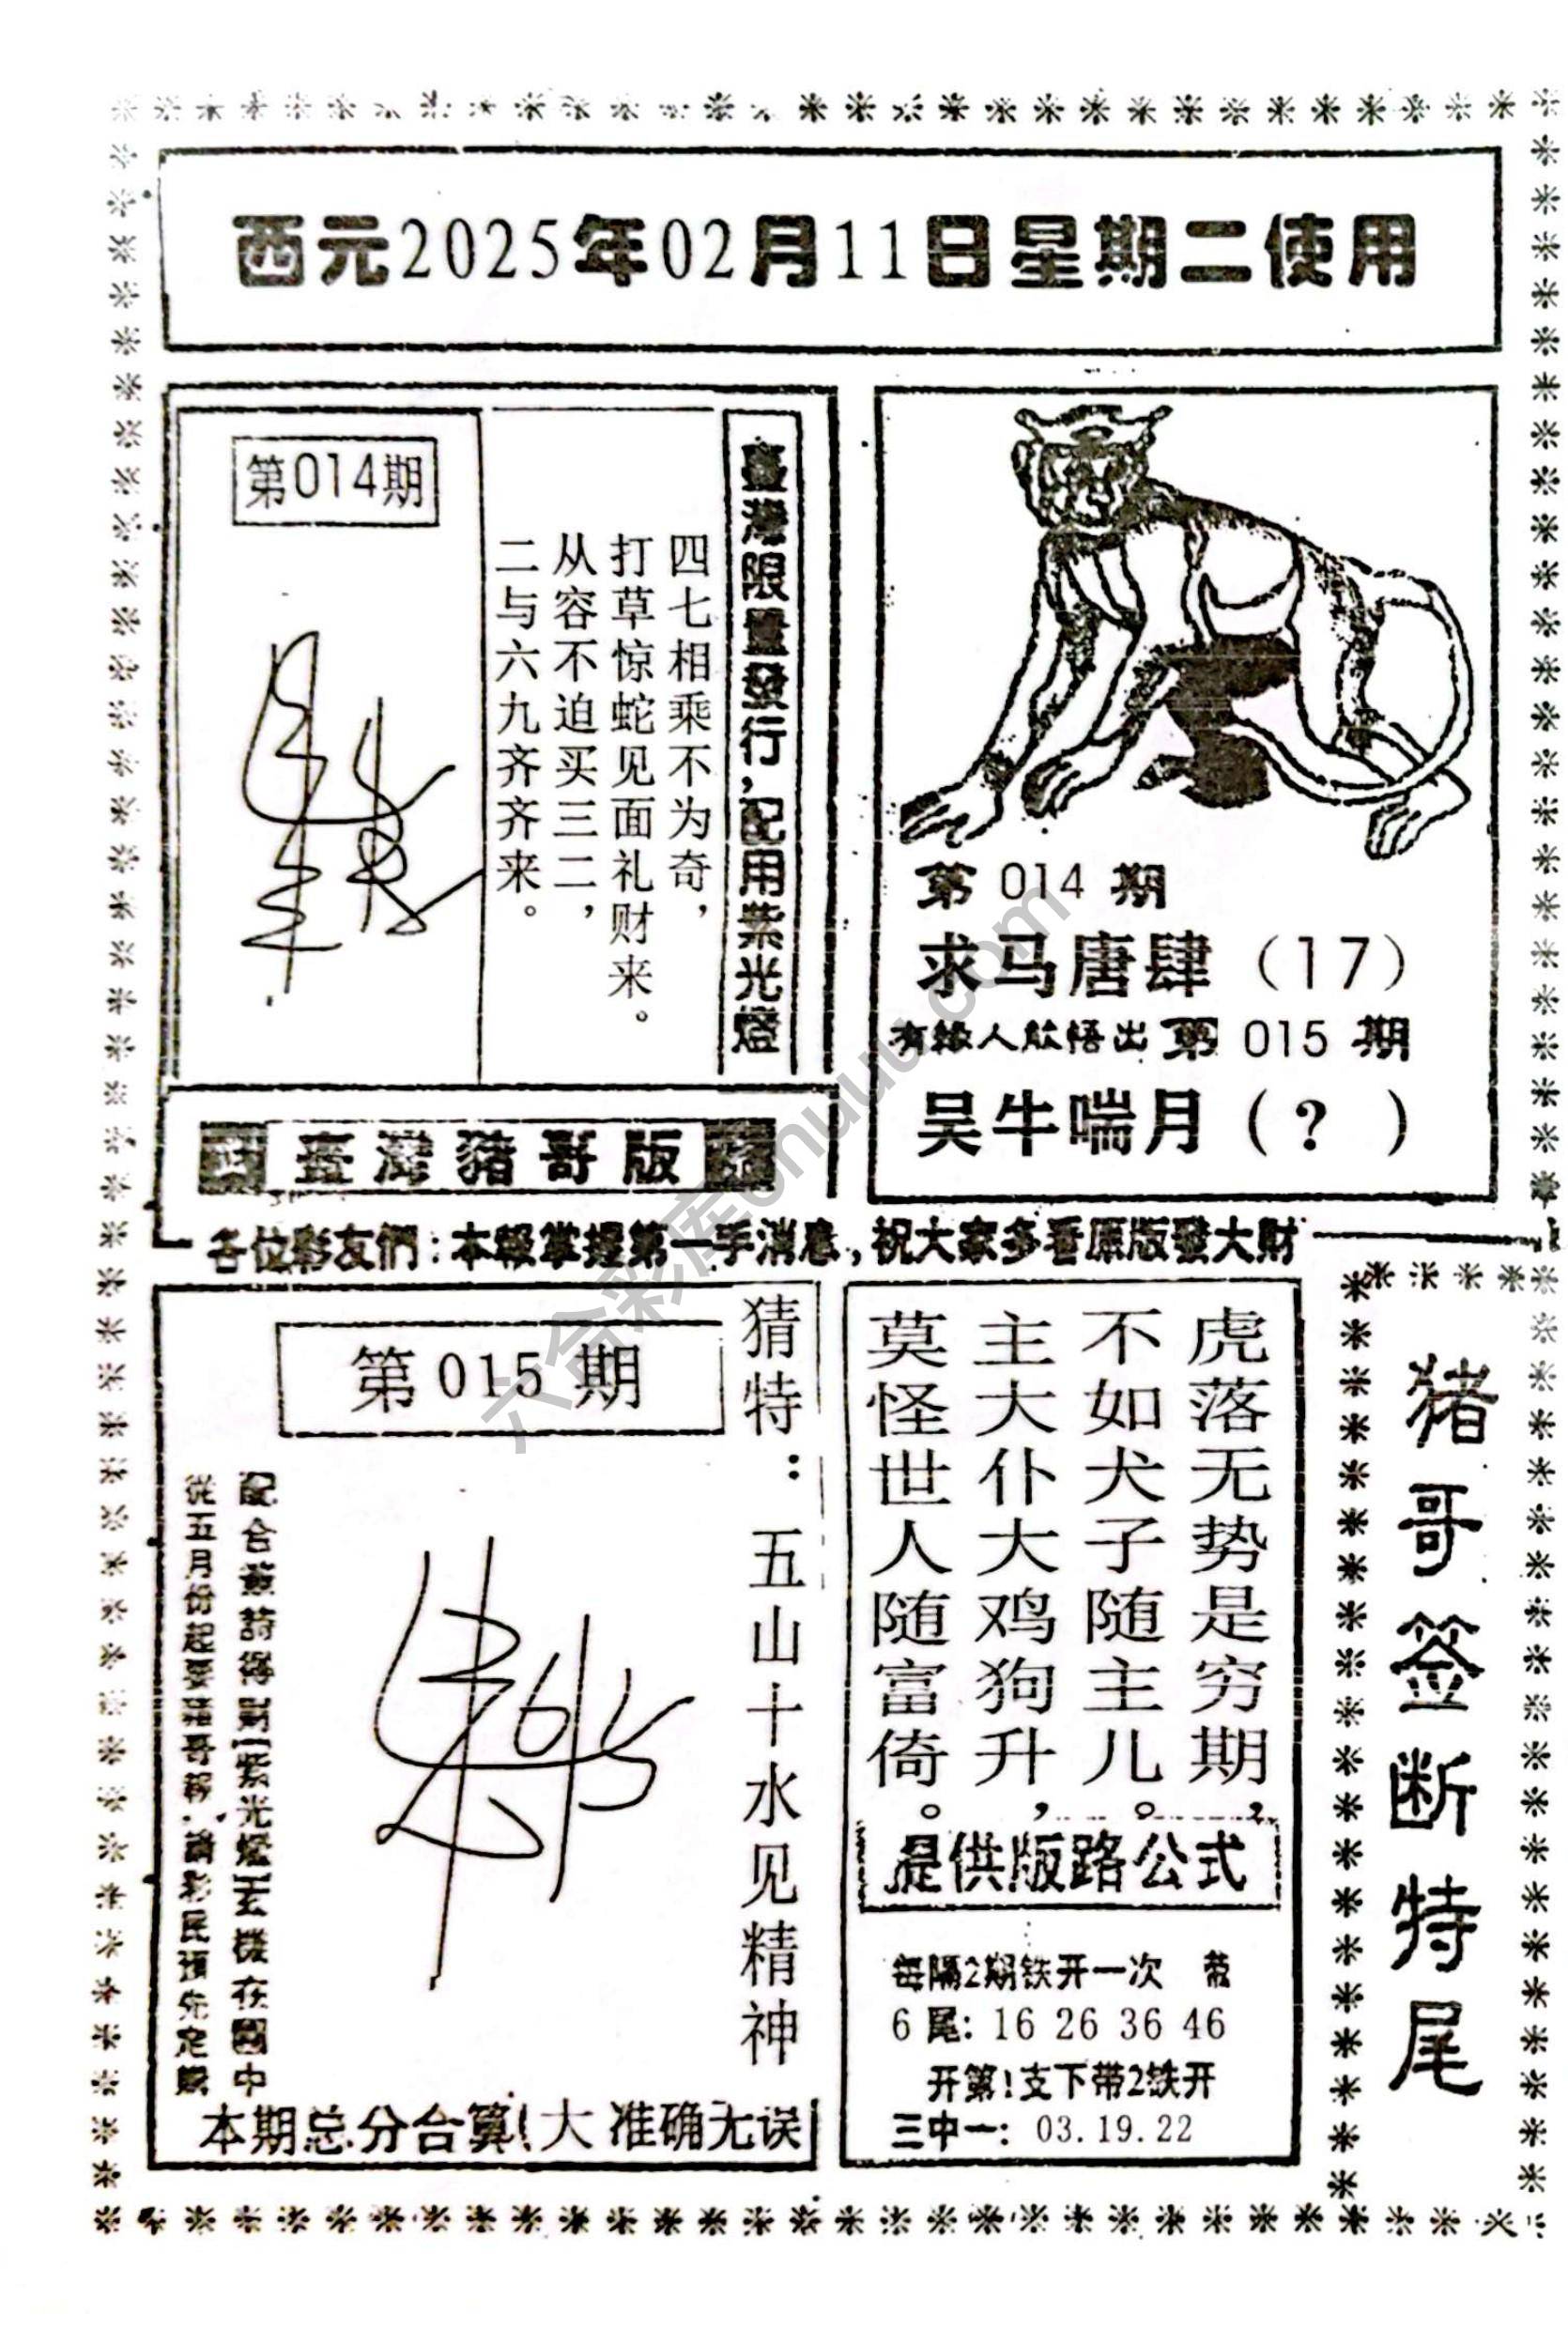 西元2025年02月11日星期二使用
第014期
臺灣限量發行，配用紫光燈
四七相乘不为奇，
打草惊蛇见面礼财来。
从容不迫买三二，
二与六九齐齐来。
第 014 期
求马唐肆（17）
有緣人能悟出 第 015 期
吴牛喘月（？）
臺灣豬哥版
各位彩友們：本報掌握第一手消息，祝大家多看原版發大財
第 015 期
猜特：五山十水见精神
配合藏詩得財[紫光燈]玄機在圖中
從五月份起要豬哥報，請彩民預先定購
本期总分合算！大 准确无误
虎落无势是穷期，
不如犬子随主儿。
主大仆大鸡狗升，
莫怪世人随富倚。
提供版路公式
每隔2期铁开一次 带
6尾：16 26 36 46
开第1支下带2铁开
三中一：03.19.22
猪哥签断特尾
六合彩库6huuu.com